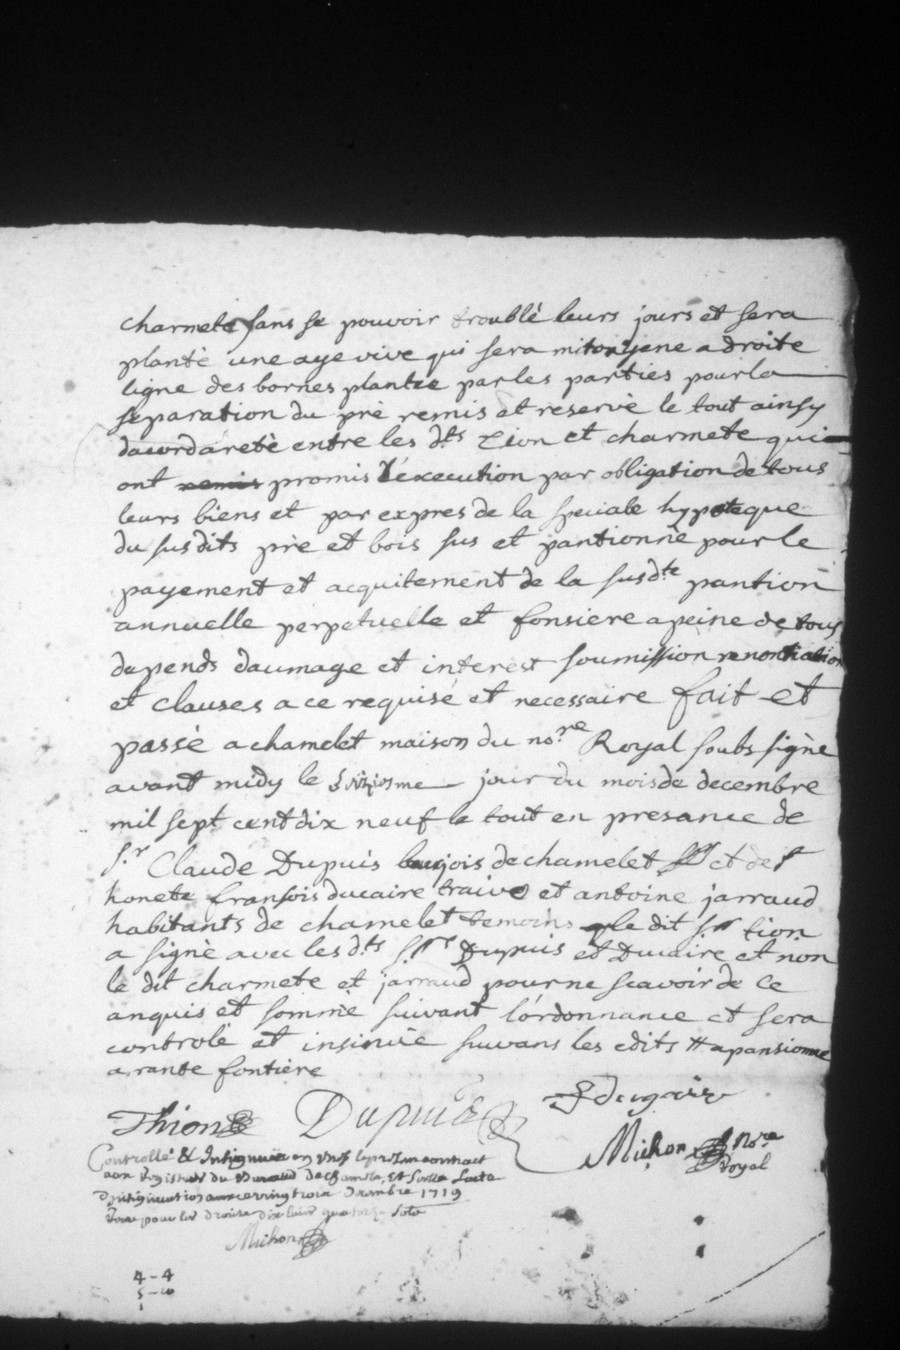 charmete sans se pouvoir troublé leurs jours et sera
planté une aye vive qui sera mitoiyene a droite
ligne des bornes plantée par les parties pour la
separation du pré remis et reservé le tout ainsy
dacord areté entre les d.ts tion et charmete qui
ont remis promis l'execution par obligation de tous
leurs biens et par expres de la speciale hypoteque
du susdits pré et bois sus et pantionné pour le
payement et acquitement de la susd.te pantion
annuelle perpetuelle et fonsiere a peine de tous
depends daumage et interest soumission renontiation
et clauses a ce requisé et necessaire fait et
passé a chamelet maison du no.re Royal soubsigné
avant midy le jour du mois de decembre
mil sept cent dix neuf le tout en presance de
s.r Claude Dupuis bourjois de chamelet et de
honete fransois ducaire et antoine jarraud
habitants de chamelet temoins le dit sr tion
a signé avec les d.ts Dupuis et Ducaire et non
le dit charmete et jarraud pour ne scavoir de ce
anquis et sommé suivant l'ordonnance et sera
controlé et insinué suivans les edits # a pansionne
a rante fontiere
Thion Dupuis
Michon No.re
Royal
Controllé & Insignué le presen contract
aux Registres du Bureau de chamelet
Decembre 1719
Michon
4-4